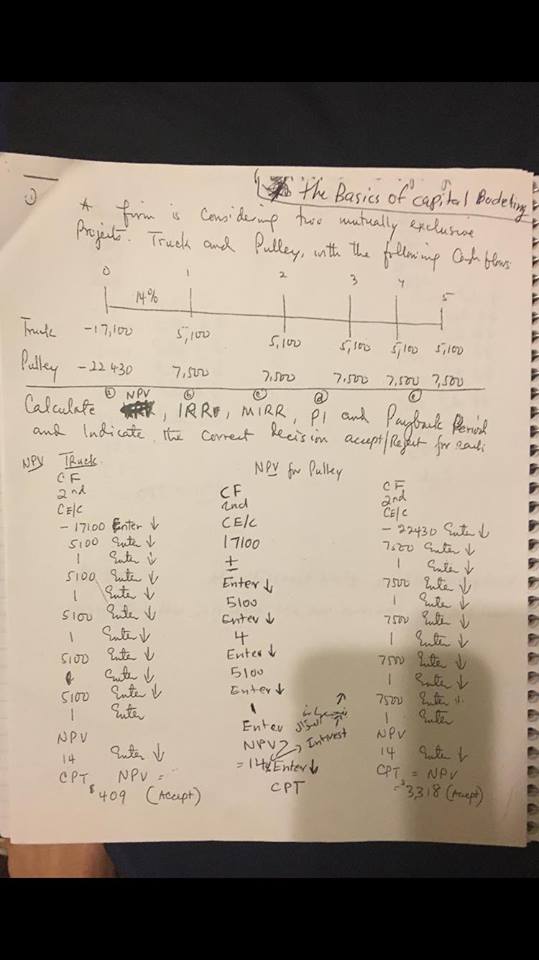 ①
the Basics of Capital Budeting
A firm is Considering two mutually exclusive
Projects. Truck and Pulley, with the following Cash flows
0 1 2 3 4 5
14%
Truck -17,100 5,100 5,100 5,100 5,100 5,100
Pulley -22 430 7,500 7,500 7,500 7,500 7,500
ⓐ NPV ⓑ ⓒ ⓓ ⓔ
Calculate , IRR, MIRR, PI and Payback Period
and Indicate the correct decision accept/Reject for each:
NPV Truck
CF
2nd
CE/C
-17100 Enter ↓
5100 Enter ↓
1 Enter ↓
5100 Enter ↓
1 Enter ↓
5100 Enter ↓
1 Enter ↓
5100 Enter ↓
Enter ↓
5100 Enter ↓
1 Enter
NPV
14 Enter ↓
CPT NPV =
$409 (Accept)
NPV for Pulley
CF
2nd
CE/C
17100
±
Enter ↓
5100
Enter ↓
4
Enter ↓
5100
Enter ↓
1
Enter
NPV
Intrest
= 14 Enter ↓
CPT
CF
2nd
CE/C
-22430 Enter ↓
7500 Enter ↓
1 Enter ↓
7500 Enter ↓
1 Enter ↓
7500 Enter ↓
1 Enter ↓
7500 Enter ↓
1 Enter ↓
7500 Enter ↓
1 Enter
NPV
14 Enter ↓
CPT = NPV
= $3,318 (Accept)